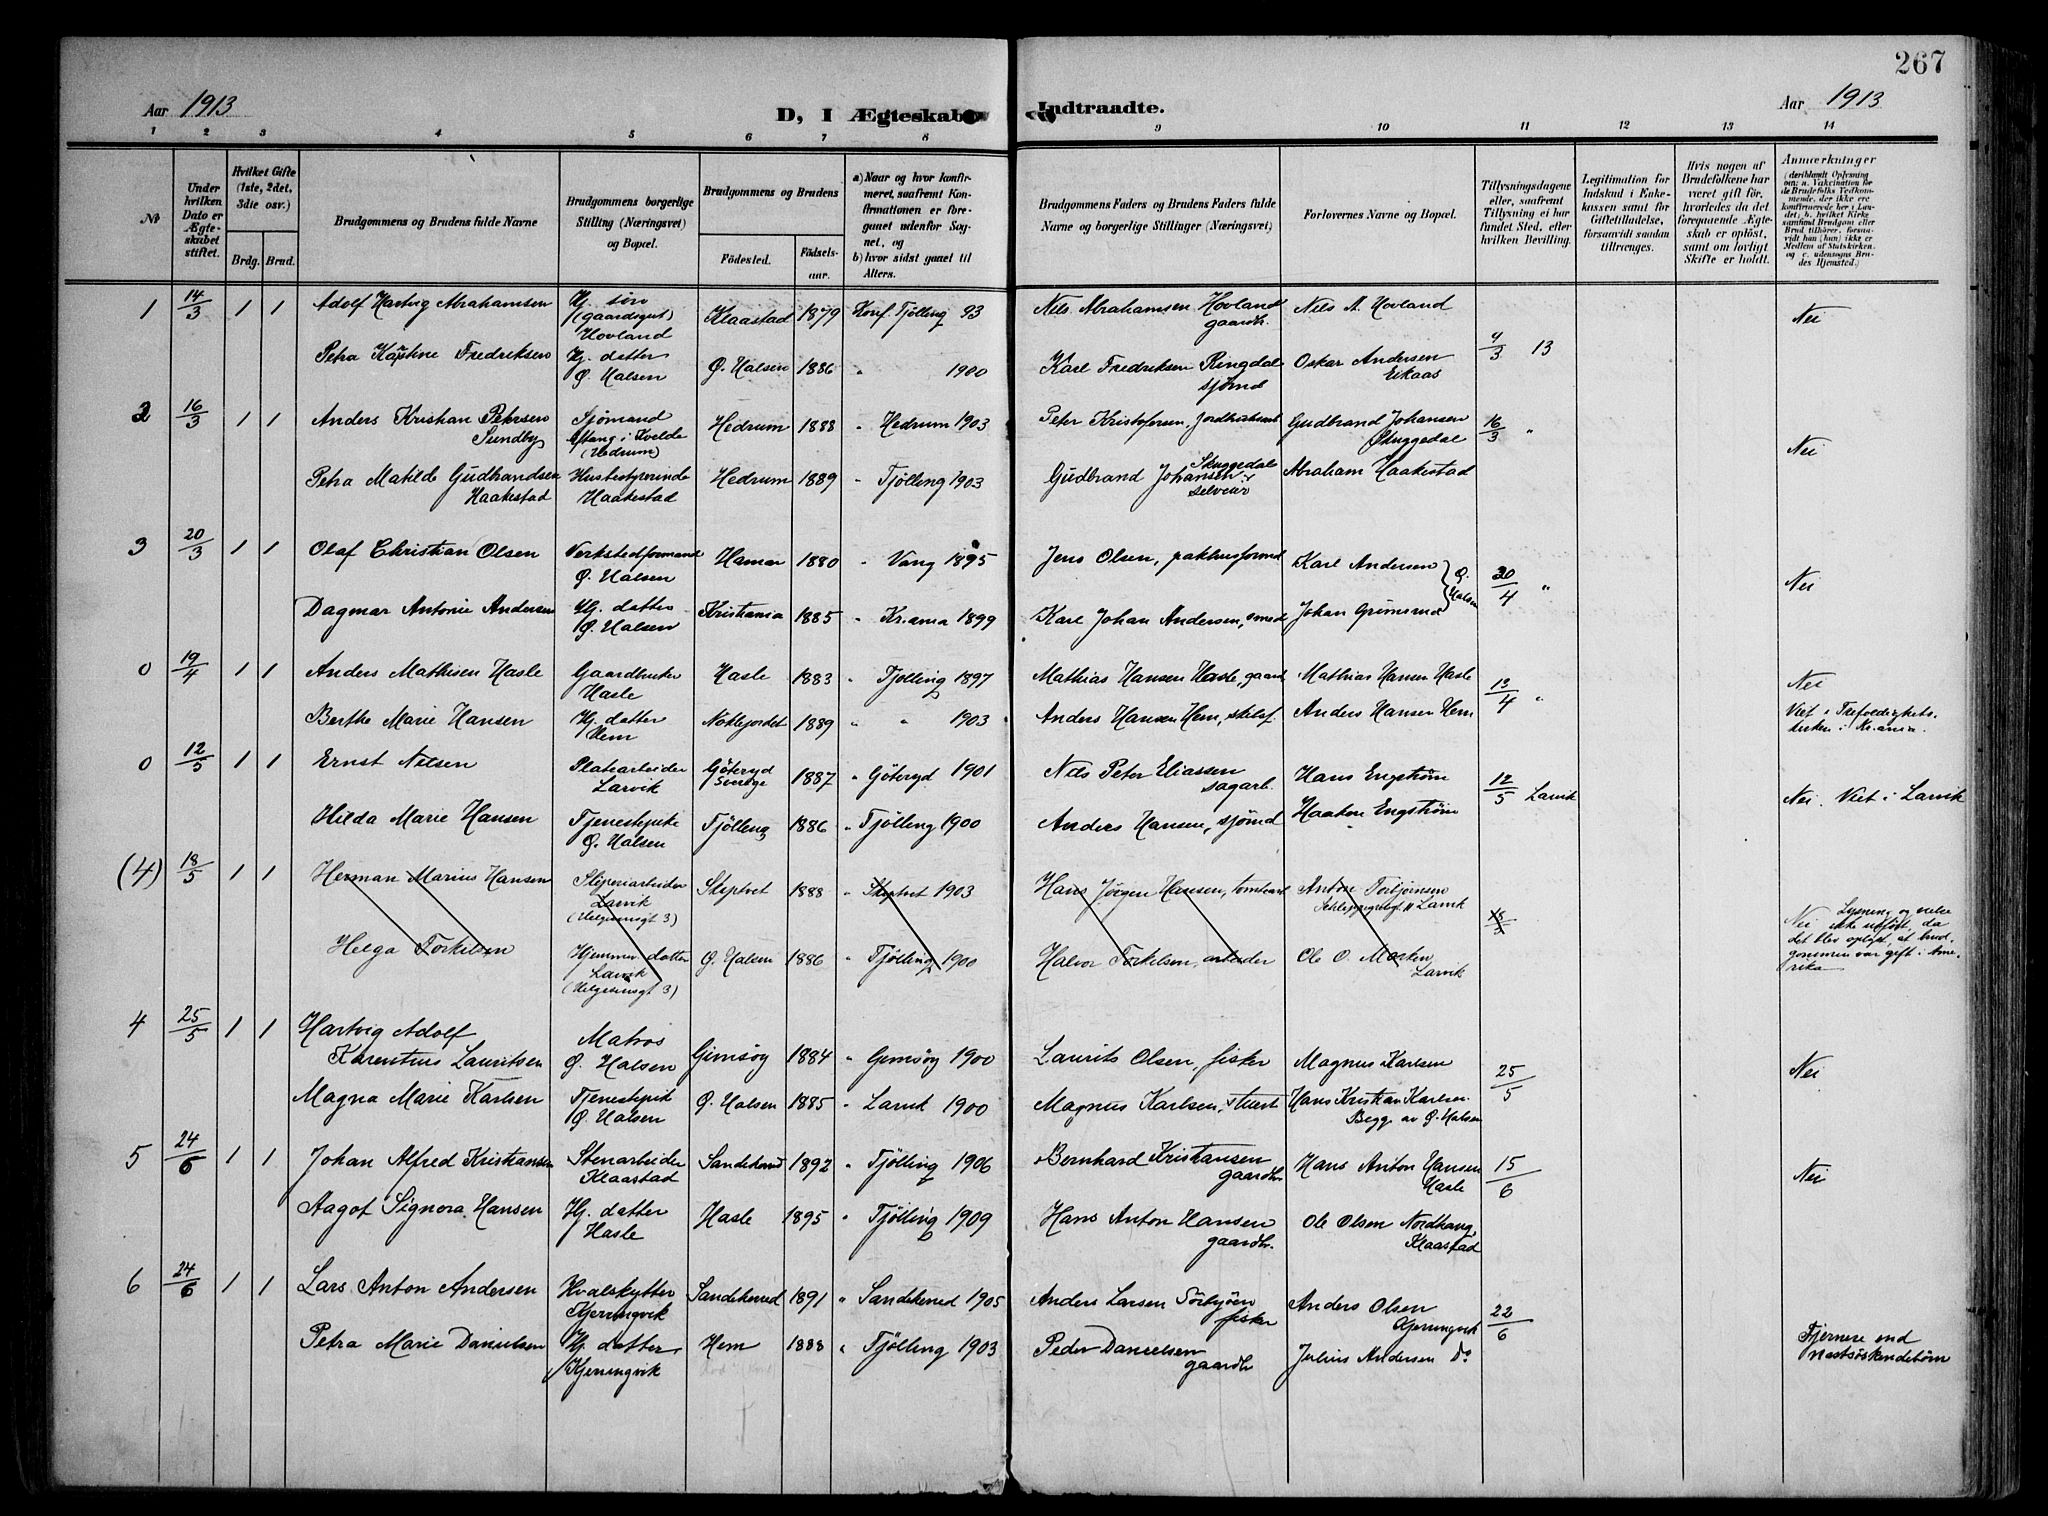 267
Aar 1913
D, I Ægteskab
Indtraadte.
Aar 1913
1 2 3 4 5 6 7 8 9 10 11 12 13 14
No
Under hvilken Dato er Ægteskabet stiftet.
Hvilket Gifte (1ste, 2det, 3die osv.)
Brdg. Brud.
Brudgommens og Brudens fulde Navne
Brudgommens borgerlige Stilling (Næringsvei) og Bopæl.
Brudgommens og Brudens
Födested. Födselsaar.
a) Naar og hvor konfirmeret, saafremt Konfirmationen er foregaaet udenfor Sognet, og
b) hvor sidst gaaet til Alters.
Brudgommens Faders og Brudens Faders fulde Navne og borgerlige Stillinger (Næringsvei)
Forlovernes Navne og Bopæl.
Tillysningsdagene eller, saafremt Tillysning ei har fundet Sted, efter hvilken Bevilling.
Legitimation for Indskud i Enkekassen samt for Giftetilladelse, forsaavidt saadan tiltrænges.
Hvis nogen af Brudefolkene har været gift för, hvorledes da det foregaaende Ægteskab er oplöst, samt om lovligt Skifte er holdt.
Anmærkninger (deriblandt Oplysning om: a. Vakcination for de Brudefolks Vedkommende, der ikke ere konfirmerede her i Landet; b. hvilket Kirkesamfund Brudgom eller Brud tilhörer, forsaavidt han (hun) ikke er Medlem af Statskirken, og c. udensogns Brudes Hjemsted.)
1 14/3 1 1 Adolf Hartvig Abrahamsen Hj. søn (gaardsgut) Hovland Klaastad 1879 Konf. Tjølling 93 Nils Abrahamsen Hovland gaardbr. Nils A. Hovland Nei
Petra Kristine Fredriksen Hj. datter Ø. Halsen Ø. Halsen 1886 " 1900 Karl Fredriksen Ringdal sjømd Oskar Andersen Eikaas 9/3 13
2 16/3 1 1 Anders Kristian Petersen Sundby Sjømand Hedrum 1888 " Hedrum 1903 Peter Kristofersen, Gudbrand Johansen Skuggedal 16/3 " Nei
i Kvelde (Hedrum)
Petra Matilde Gudbrandsen Haakestad Husbestyrerinde Haakestad Hedrum 1889 " Tjølling 1903 Gudbrand Johansen Skuggedal selveier Abraham Haakestad
3 20/3 1 1 Olaf Christian Olsen Verkstedformand Ø. Halsen Hamar 1880 " Vang 1895 Jens Olsen, pakhusformd Karl Andersen Ø. Halsen 30/4 " Nei
Dagmar Antonie Andersen Hj. datter Ø. Halsen Kristiania 1885 " Kr.ania 1899 Karl Johan Andersen, smed Johan Grimsrud
0 19/4 1 1 Anders Mathisen Hasle Gaardbruker Hasle Hasle 1883 " Tjølling 1897 Mathias Hansen Hasle, gaard Mathias Hansen Hasle 13/4 " Nei
Berthe Marie Hansen Hj. datter Hem 1889 " " 1903 Anders Hansen Hem, Anders Hansen Hem Viet i Trefoldighetskirken i Kr.ania.
0 12/5 1 1 Ernst Nilsen Platearbeider Larvik Göteryd Sverige 1887 " Göteryd 1901 Nils Peter Eliassen sagarb. Hans Engstrøm 12/5 Larvik Nei. Viet i Larvik
Hilda Marie Hansen Tjenestepike Ø. Halsen Tjølling 1886 " Tjølling 1900 Anders Hansen, sjømd Haaken Engstrøm
(4) 18/5 1 1 Herman Marius Hansen Sliperiarbeider Larvik (Helgesensgt 3) Skiptvet 1888 " Skiptvet 1903 Hans Jørgen Hansen, Anton Torbjørnsen Larvik 18/5 Nei Lysning og vielse ikke utført, da det blev oplyst, at brudgommen var gift i Amerika
Helga Torkelsen Hjemmev. datter Larvik (Helgesensgt 3) Ø. Halsen 1886 " Tjølling 1900 Halvor Torkelsen, arbeider Ole O. Moskén, Larvik
4 25/5 1 1 Hartvig Adolf Karentius Lauritsen Matros Ø. Halsen Gimsøy 1884 " Gimsøy 1900 Laurits Olsen, fisker Magnus Karlsen 25/5 Nei
Magna Marie Karlsen Tjenestepik Ø. Halsen Ø. Halsen 1885 " Larvik 1900 Magnus Karlsen, stuert Hans Kristian Karlsen Begge av Ø. Halsen
5 24/6 1 1 Johan Alfred Kristiansen Stenarbeider Klaastad Sandeherred 1892 " Tjølling 1906 Bernhard Kristiansen gaardbr. Hans Anton Hansen Hasle 15/6 Nei
Aagot Signora Hansen Hj. datter Hasle Hasle 1895 " Tjølling 1909 Hans Anton Hansen gaardbr. Ole Olsen Nordhaug, Klaastad
6 24/6 1 1 Lars Anton Andersen Hvalskytter Kjerringvik Sandeherred 1891 " Sandeherred 1905 Anders Larsen fisker Anders Olsen Kjerringvik 22/6
Petra Marie Danielsen Hj. datter Kjerringvik Hem 1888 " Tjølling 1903 Peder Danielsen gaardbr Julius Andersen Do Fjernere end næstsøskendebørn